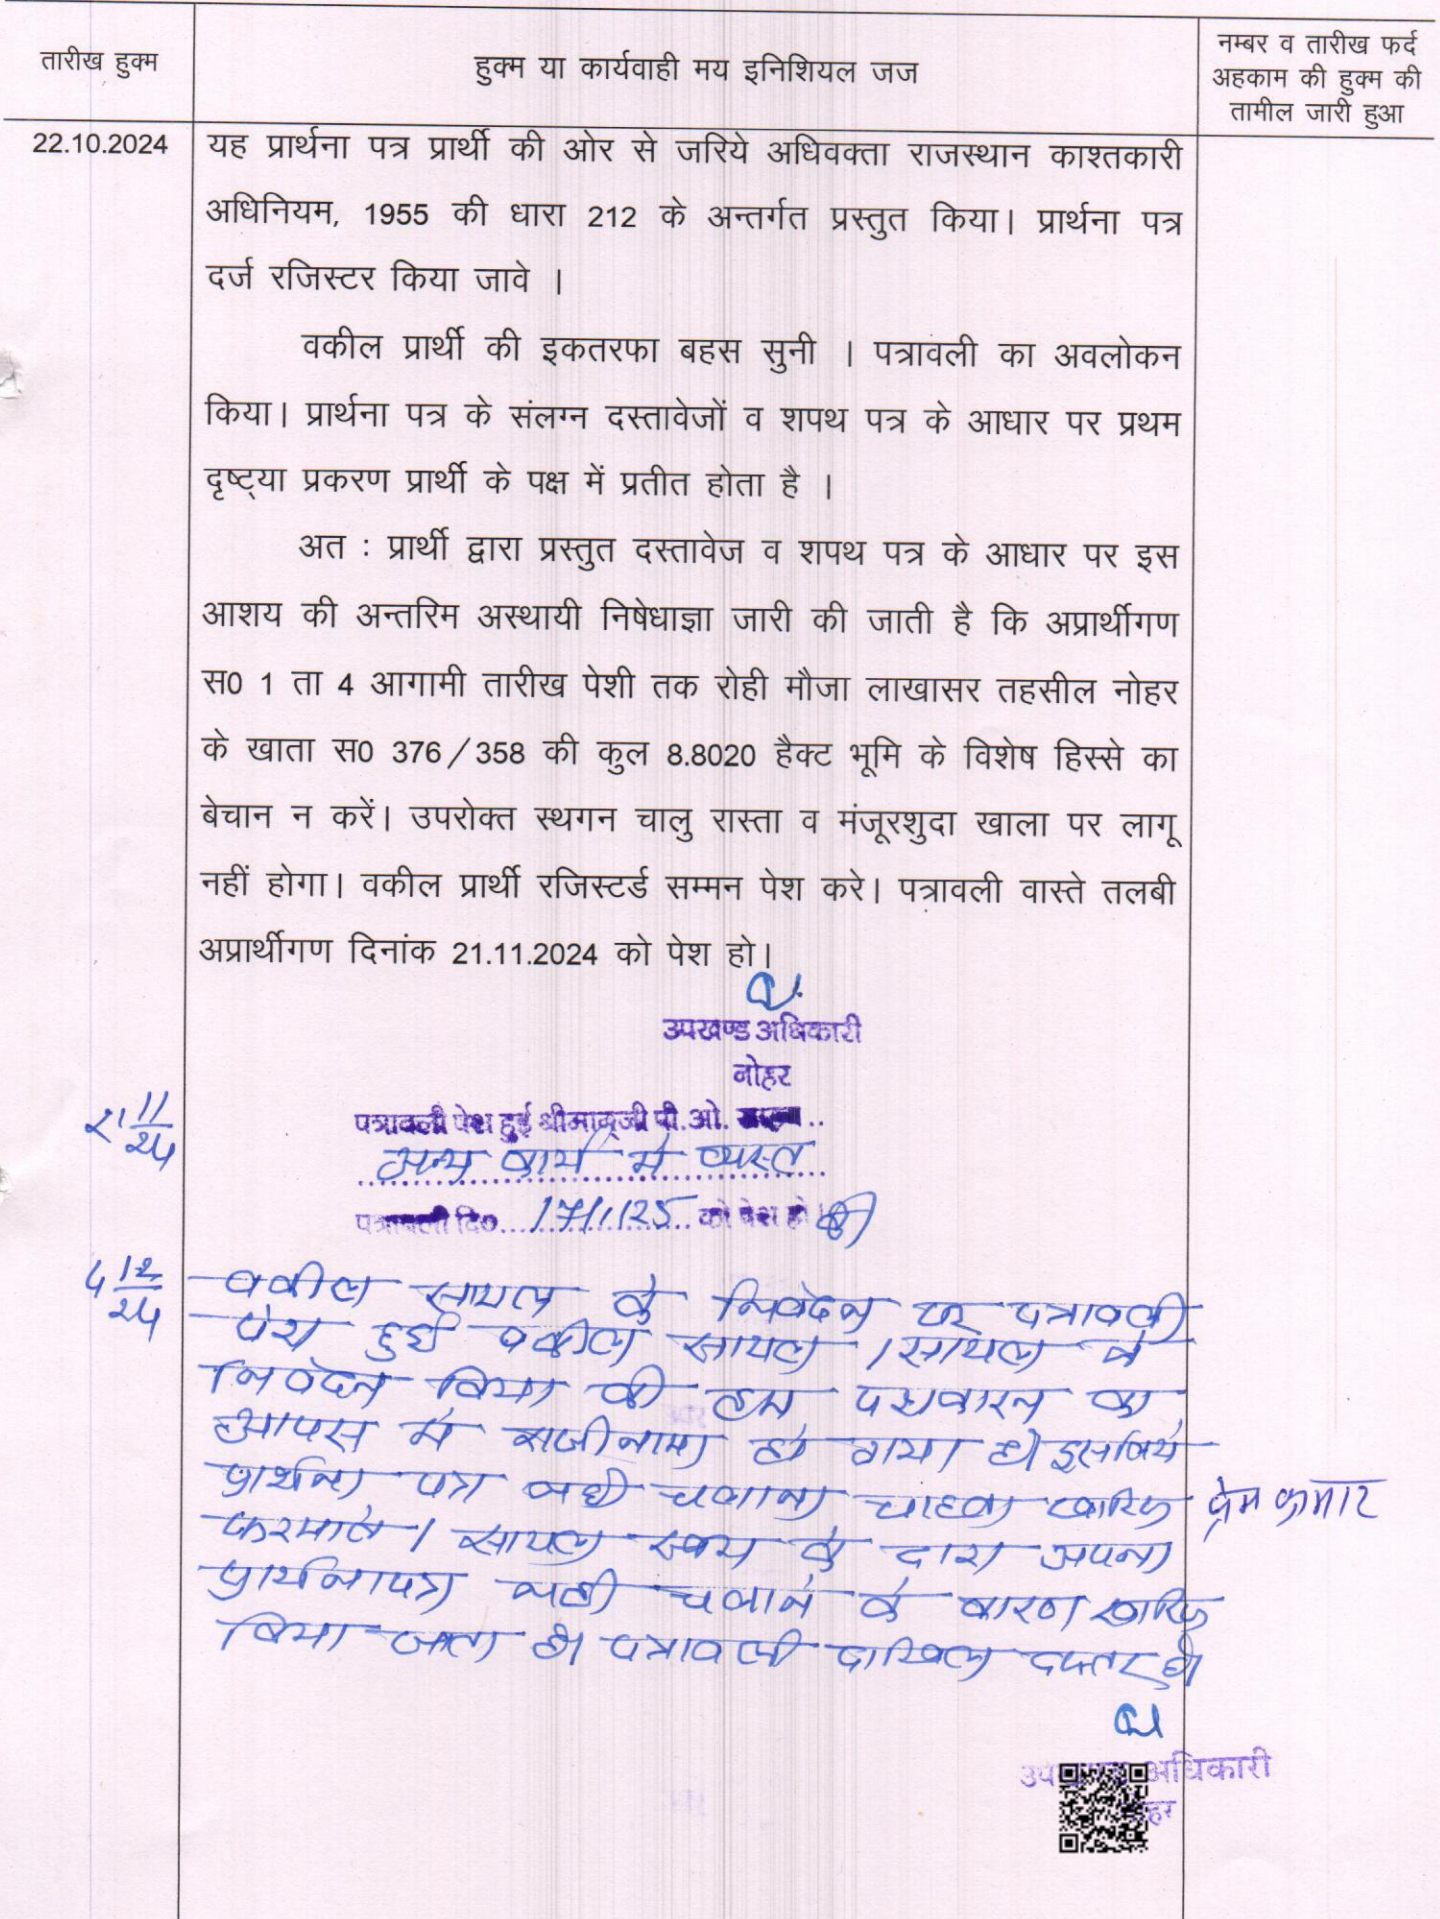 तारीख हुक्म
हुक्म या कार्यवाही मय इनिशियल जज
नम्बर व तारीख फर्द
अहकाम की हुक्म की
तामील जारी हुआ
22.10.2024
यह प्रार्थना पत्र प्रार्थी की ओर से जरिये अधिवक्ता राजस्थान काश्तकारी
अधिनियम, 1955 की धारा 212 के अन्तर्गत प्रस्तुत किया। प्रार्थना पत्र
दर्ज रजिस्टर किया जावे ।
वकील प्रार्थी की इकतरफा बहस सुनी । पत्रावली का अवलोकन
किया। प्रार्थना पत्र के संलग्न दस्तावेजों व शपथ पत्र के आधार पर प्रथम
दृष्ट्या प्रकरण प्रार्थी के पक्ष में प्रतीत होता है ।
अत : प्रार्थी द्वारा प्रस्तुत दस्तावेज व शपथ पत्र के आधार पर इस
आशय की अन्तरिम अस्थायी निषेधाज्ञा जारी की जाती है कि अप्रार्थीगण
स0 1 ता 4 आगामी तारीख पेशी तक रोही मौजा लाखासर तहसील नोहर
के खाता स0 376/358 की कुल 8.8020 हैक्ट भूमि के विशेष हिस्से का
बेचान न करें। उपरोक्त स्थगन चालु रास्ता व मंजूरशुदा खाला पर लागू
नहीं होगा। वकील प्रार्थी रजिस्टर्ड सम्मन पेश करे। पत्रावली वास्ते तलबी
अप्रार्थीगण दिनांक 21.11.2024 को पेश हो।
उपखण्ड अधिकारी
नोहर
21 11/24
पत्रावली पेश हुई श्रीमान् जी पी.ओ.
अन्य कार्य मे व्यस्त
पत्रावली दि0 17/1/25 को पेश हो
4 12/24
वकील सायल के निवेदन पर पत्रावली
पेश हुई वकील सायल / सायल ने
निवेदन किया की हम पक्षकारन का
आपस मे राजीनामा हो गया है। इसलिये
प्रार्थना पत्र नही चलाना चाहता खारिज
प्रेम कुमार
फरमावे। सायल स्वयं के द्वारा अपना
प्रार्थनापत्र नही चलाने के कारण खारिज
किया जाता है। पत्रावली दाखिल दफ्तर हो
अधिकारी